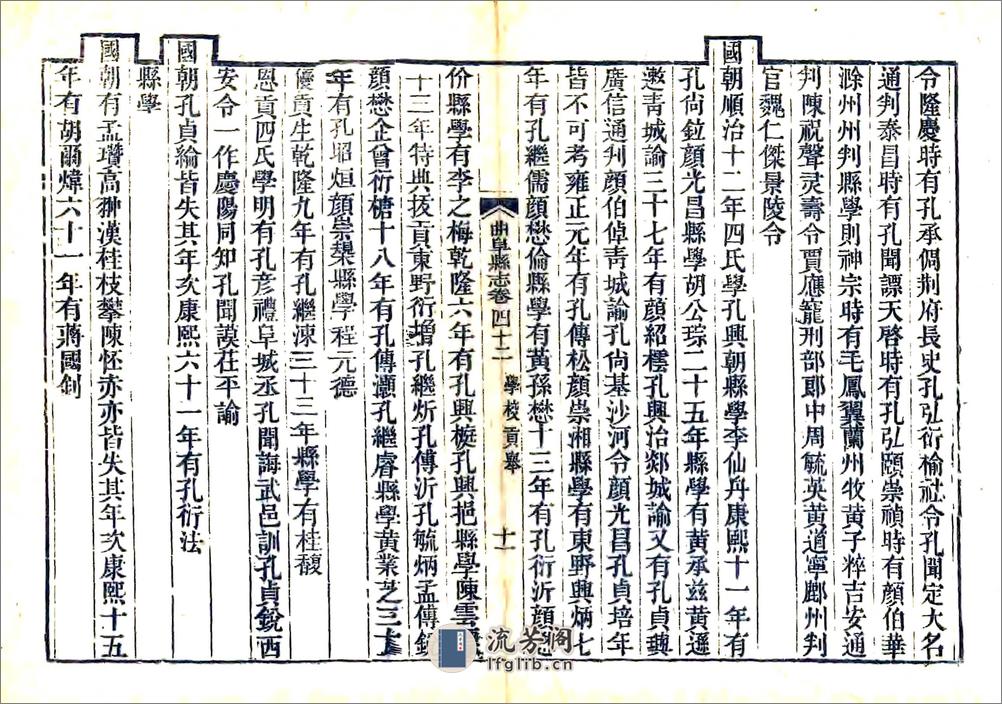 令隆慶時有孔承倜荆府長史孔弘衍榆社令孔聞定大名
通判泰昌時有孔聞謤天啓時有孔弘頤崇禎時有顏伯華
滁州州判縣學則神宗時有毛鳳翼蘭州牧黄子粹吉安通
判陳祝聲灵壽令賈應寵刑部郎中周毓英黄道寧鄜州判
官魏仁傑景陵令
國朝順治十二年四氏學孔興朝縣學李仙舟康熙十一年有
孔尙鉝顏光昌縣學胡公琮二十五年縣學有黄承兹黄遜
遨靑城諭三十七年有顏紹樰孔興治郯城諭又有孔貞輿
廣信通判顏伯倬靑城諭孔尙基沙河令顏光昌孔貞培年
皆不可考雍正元年有孔傳松顏崇湘縣學有東野興炳七
年有孔繼儒顏懋倫縣學有黃孫懋十三年有孔衍沂顏
曲阜縣志卷四十二 學校貢舉 十一
份縣學有李之梅乾隆六年有孔興榳孔興挹縣學陳雲
十二年特典拔貢東野衍增孔繼炘孔傳沂孔毓炳孟傳
顏懋企曾衍樀十八年有孔傳灝孔繼睿縣學黄業芝三十
年有孔昭烜顏崇槼縣學程元德
優貢生乾隆九年有孔繼涑三十三年縣學有桂馥
恩貢四氏學明有孔彦禮阜城丞孔聞誨武邑訓孔貞銳西
安令一作慶陽同知孔聞謨茌平諭
國朝孔貞綸皆失其年次康熙六十一年有孔衍法
縣學
國朝有孟瓚高翀漢桂枝攀陳怀亦亦皆失其年次康熙十五
年有胡爾煒六十一年有蔣國制
流芳阁
lfglib.cn